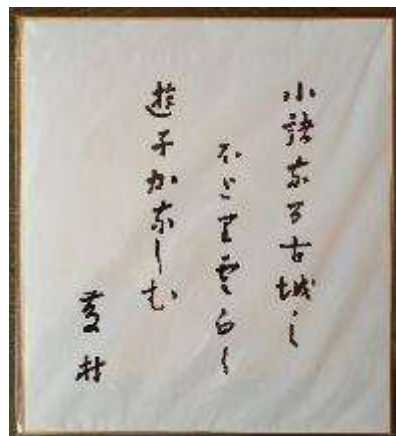 小諸なる古城の
ほとり雲白く
遊子かなしむ
藤村